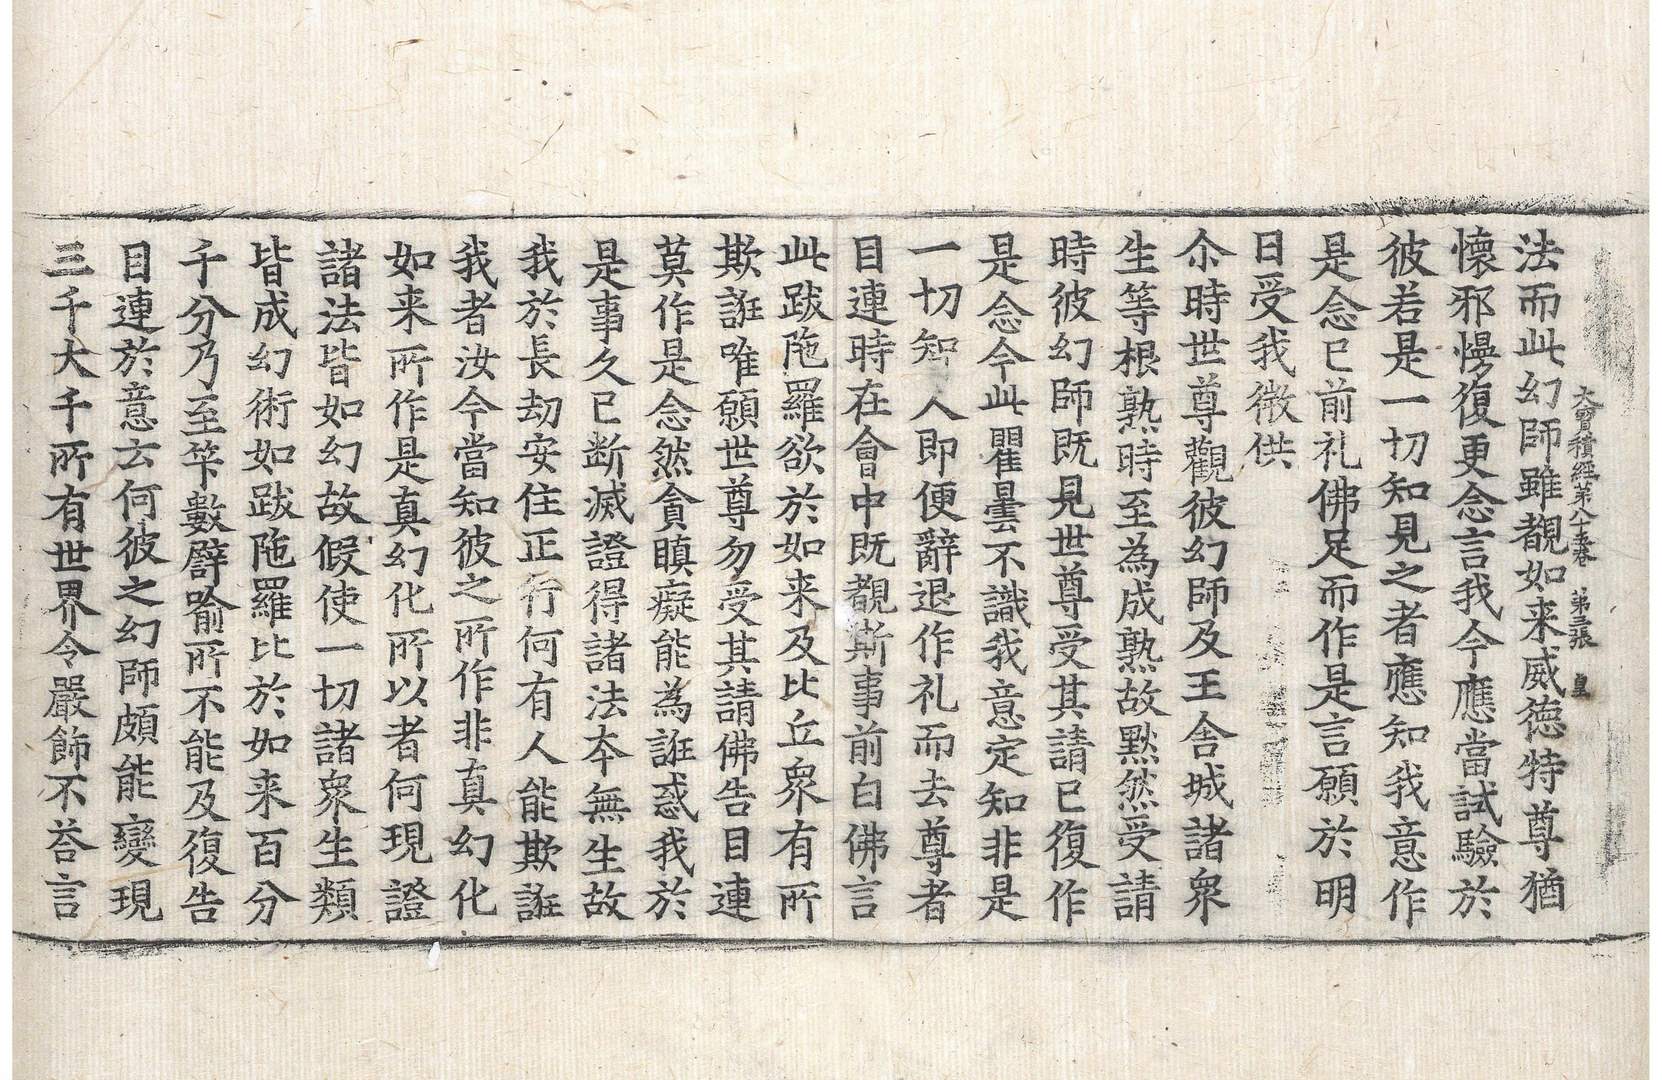 大寶積經第八十五卷 第三張 皇
法而此幻師雖覩如来威德特尊猶
懷邪慢復更念言我今應當試驗於
彼若是一切知見之者應知我意作
是念已前礼佛足而作是言願於明
日受我微供
尒時世尊觀彼幻師及王舍城諸衆
生等根熟時至為成熟故黙然受請
時彼幻師既見世尊受其請已復作
是念今此瞿曇不識我意定知非是
一切知人即便辭退作礼而去尊者
目連時在會中既覩斯事前白佛言
此跋陁羅欲於如来及比丘衆有所
欺誑唯願世尊勿受其請佛告目連
莫作是念然貪瞋癡能為誑惑我於
是事久已断滅證得諸法夲無生故
我於長劫安住正行何有人能欺誑
我者汝今當知彼之所作非真幻化
如来所作是真幻化所以者何現證
諸法皆如幻故假使一切諸衆生類
皆成幻術如跋陁羅比於如来百分
千分乃至筭數譬喻所不能及復告
目連於意云何彼之幻師頗能變現
三千大千所有世界令嚴飾不荅言